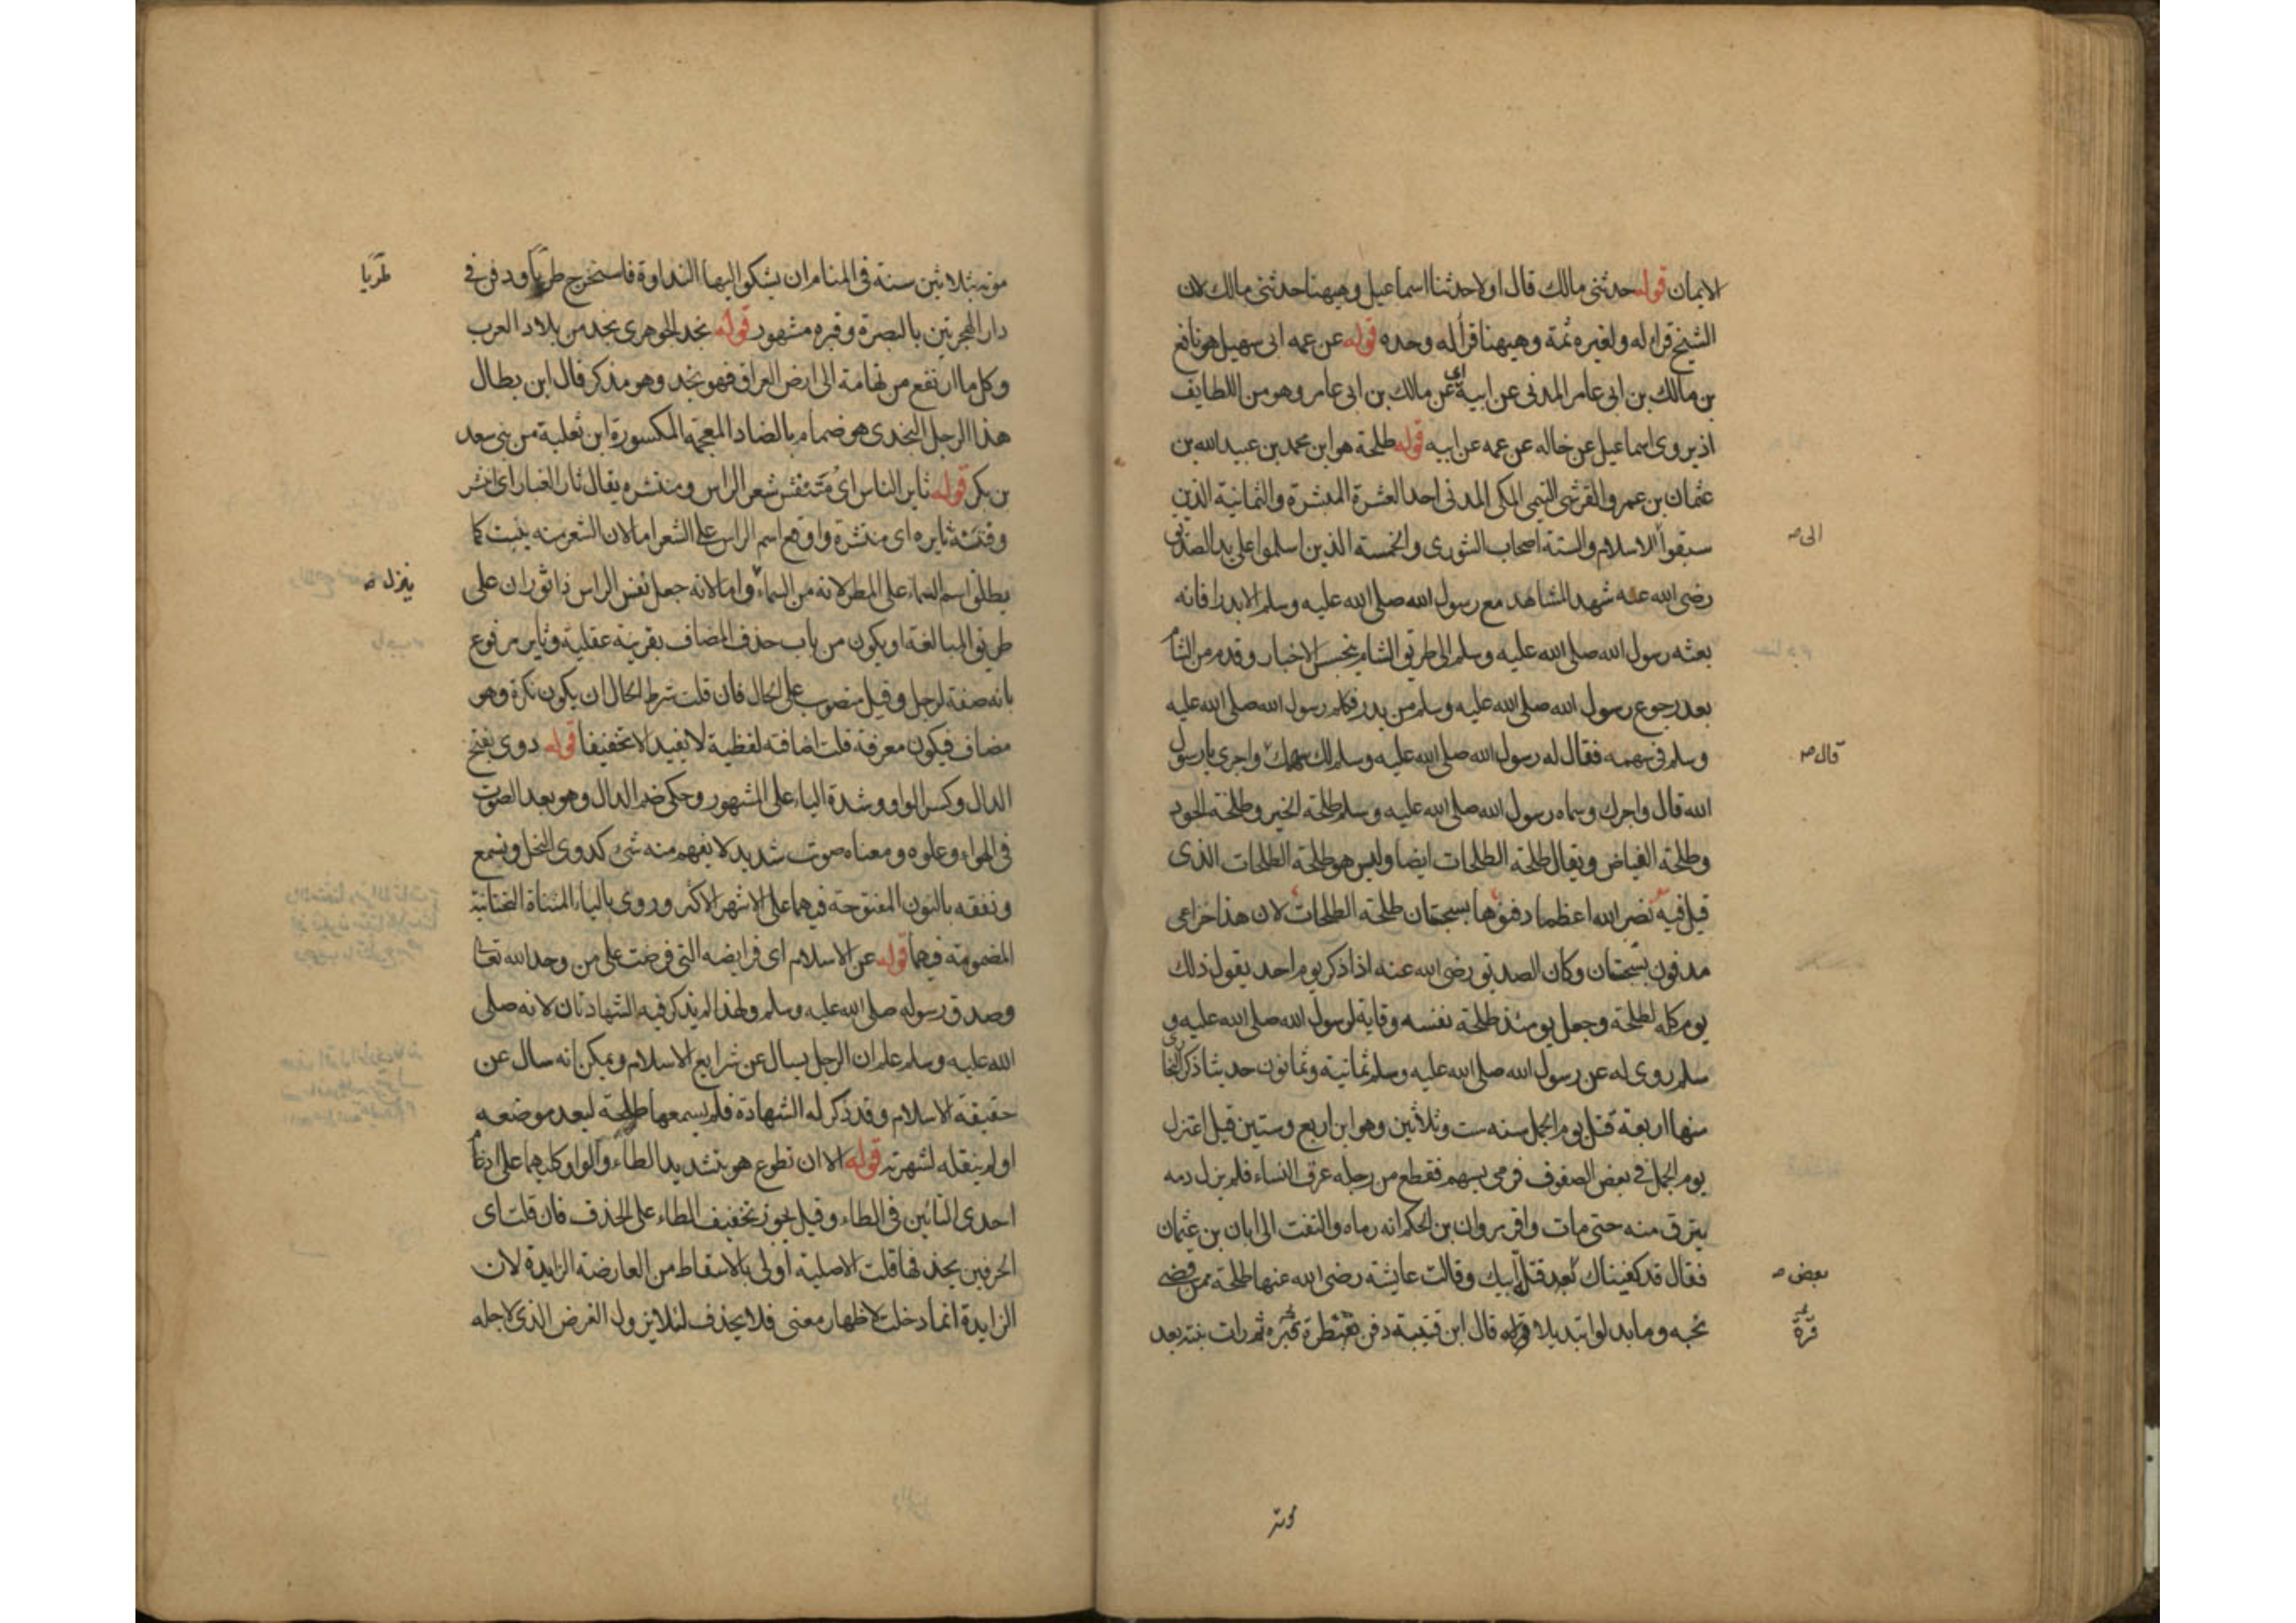 الايمان قوله حدثنى مالك قال اولا حدثنا اسماعيل وهيهنا حدثنى مالك لان
الشيخ قرا له ولغيره ثمة وهيهنا قرأ له وحده قوله عن عمه ابى سهيل هو نافع
بن مالك بن ابى عامر المدنى عن ابيه اى عن مالك بن ابى عامر وهو من اللطايف
اذ يروى اسماعيل عن خاله عن عمه عن ابيه قوله طلحة هو ابن محمد بن عبيد الله بن
عثمان بن عمرو القرشى التيمى المكى المدنى احد العشرة المبشرة والثمانية الذين
سبقوا الاسلام والستة اصحاب الشورى والخمسة الذين اسلموا على يد الصديق
الى صح
رضى الله عنه شهد المشاهد مع رسول الله صلى الله عليه وسلم الا بدرا فانه
بعثه رسول الله صلى الله عليه وسلم الى طريق الشام يتجسس الاخبار وقدم من الشام
بعد رجوع رسول الله صلى الله عليه وسلم من بدر فكلم رسول الله صلى الله عليه
وسلم فى سهمه فقال له رسول الله صلى الله عليه وسلم لك سهمك واجرى يا رسول
قال صح
الله قال واجرك وسماه رسول الله صلى الله عليه وسلم طلحة الخير وطلحة الجود
وطلحة الفياض ويقال طلحة الطلحات ايضا وليس هو طلحة الطلحات الذى
قيل فيه نضر الله اعظما دفنوها بسجستان طلحة الطلحات لان هذا خزاعى
مدفون بسجستان وكان الصديق رضى الله عنه اذا ذكر يوم احد يقول ذلك
يوم كله لطلحة وجعل يومئذ طلحة نفسه وقاية لرسول الله صلى الله عليه و
سلم روى له عن رسول الله صلى الله عليه وسلم ثمانية وثمانون حديثا ذكر البخارى
منها اربعة قتل يوم الجمل سنه ست وثلاثين وهو ابن اربع وستين قيل اعتزل
يوم الجمل فى بعض الصفوف فرمى بسهم فقطع من رجله عرق النساء فلم يزل دمه
ينزف منه حتى مات واقر مروان بن الحكم انه رماه والتفت الى ابان بن عثمان
فقال قد كفيناك بعد قتل ابيك وقالت عايشة رضى الله عنها طلحة ممن قضى
بعض صح
نحبه وما بدلوا تبديلا قوله قال ابن قتيبة دفن بقنطرة قره ثم رات بنته بعد
قُرَّة
موته
موته بثلاثين سنة فى المنام ان يشكو اليها النداوة فاستخرج طريا ودفن فى
طَرِيَّا
دار الهجرتين بالبصرة وقبره مشهور قوله نجد الجوهرى نجد من بلاد العرب
وكل ما ارتفع من تهامة الى ارض العراق فهو نجد وهو مذكر قال ابن بطال
هذا الرجل النجدى هو ضمام بالضاد المعجمة المكسورة ابن ثعلبة من بنى سعد
بن بكر قوله ثاير الناس اى منتفش شعر الراس ومنتشره يقال ثار الغبار اى انتشر
وفتنة ثايره اى منتشرة واوقع اسم الراس على الشعر اما لان الشعر منه ينبت كما
يطلق اسم السماء على المطر لانه من السماء واما لانه جعل نفس الراس ذا ثوران على
ينزل صح
طريق المبالغة او يكون من باب حذف المضاف بقرينة عقلية وثاير مرفوع
بانه صفة لرجل وقيل منصوب على الحال فان قلت شرط الحال ان يكون نكرة وهو
مضاف فيكون معرفة قلت اضافته لفظية لا يفيد الا تخفيفا قوله دوى بفتح
الدال وكسر الواو وشدة الياء على المشهور وحكى ضم الدال وهو بعد الصوت
فى الهواء وعلوه ومعناه صوت شديد لا يفهم منه شى كدوى النحل ونسمع
ونفقه بالنون المفتوحة فيهما على الاشهر الاكثر وروى بالياء المثناة التحتانية
المضمومة فيهما قوله عن الاسلام اى فرايضه التى فرضت على من وحد الله تعالى
وصدق رسوله صلى الله عليه وسلم ولهذا لم يذكر فيه الشهادتان لانه صلى
الله عليه وسلم علم ان الرجل يسال عن شرايع الاسلام ويمكن انه سال عن
حقيقة الاسلام وقد ذكر له الشهادة فلم يسمعها طلحة لبعد موضعه
او لم ينقله لشهرته قوله الا ان تطوع هو بتشديد الطاء والواو كليهما على ادغام
احدى التائين فى الطاء وقيل يجوز تخفيف الطاء على الحذف فان قلت اى
الحرفين يحذفها قلت الاصلية اولى بالاسقاط من العارضة الزايدة لان
الزايدة انما دخلت لاظهار معنى فلا يحذف لئلا يزول الغرض الذى لاجله